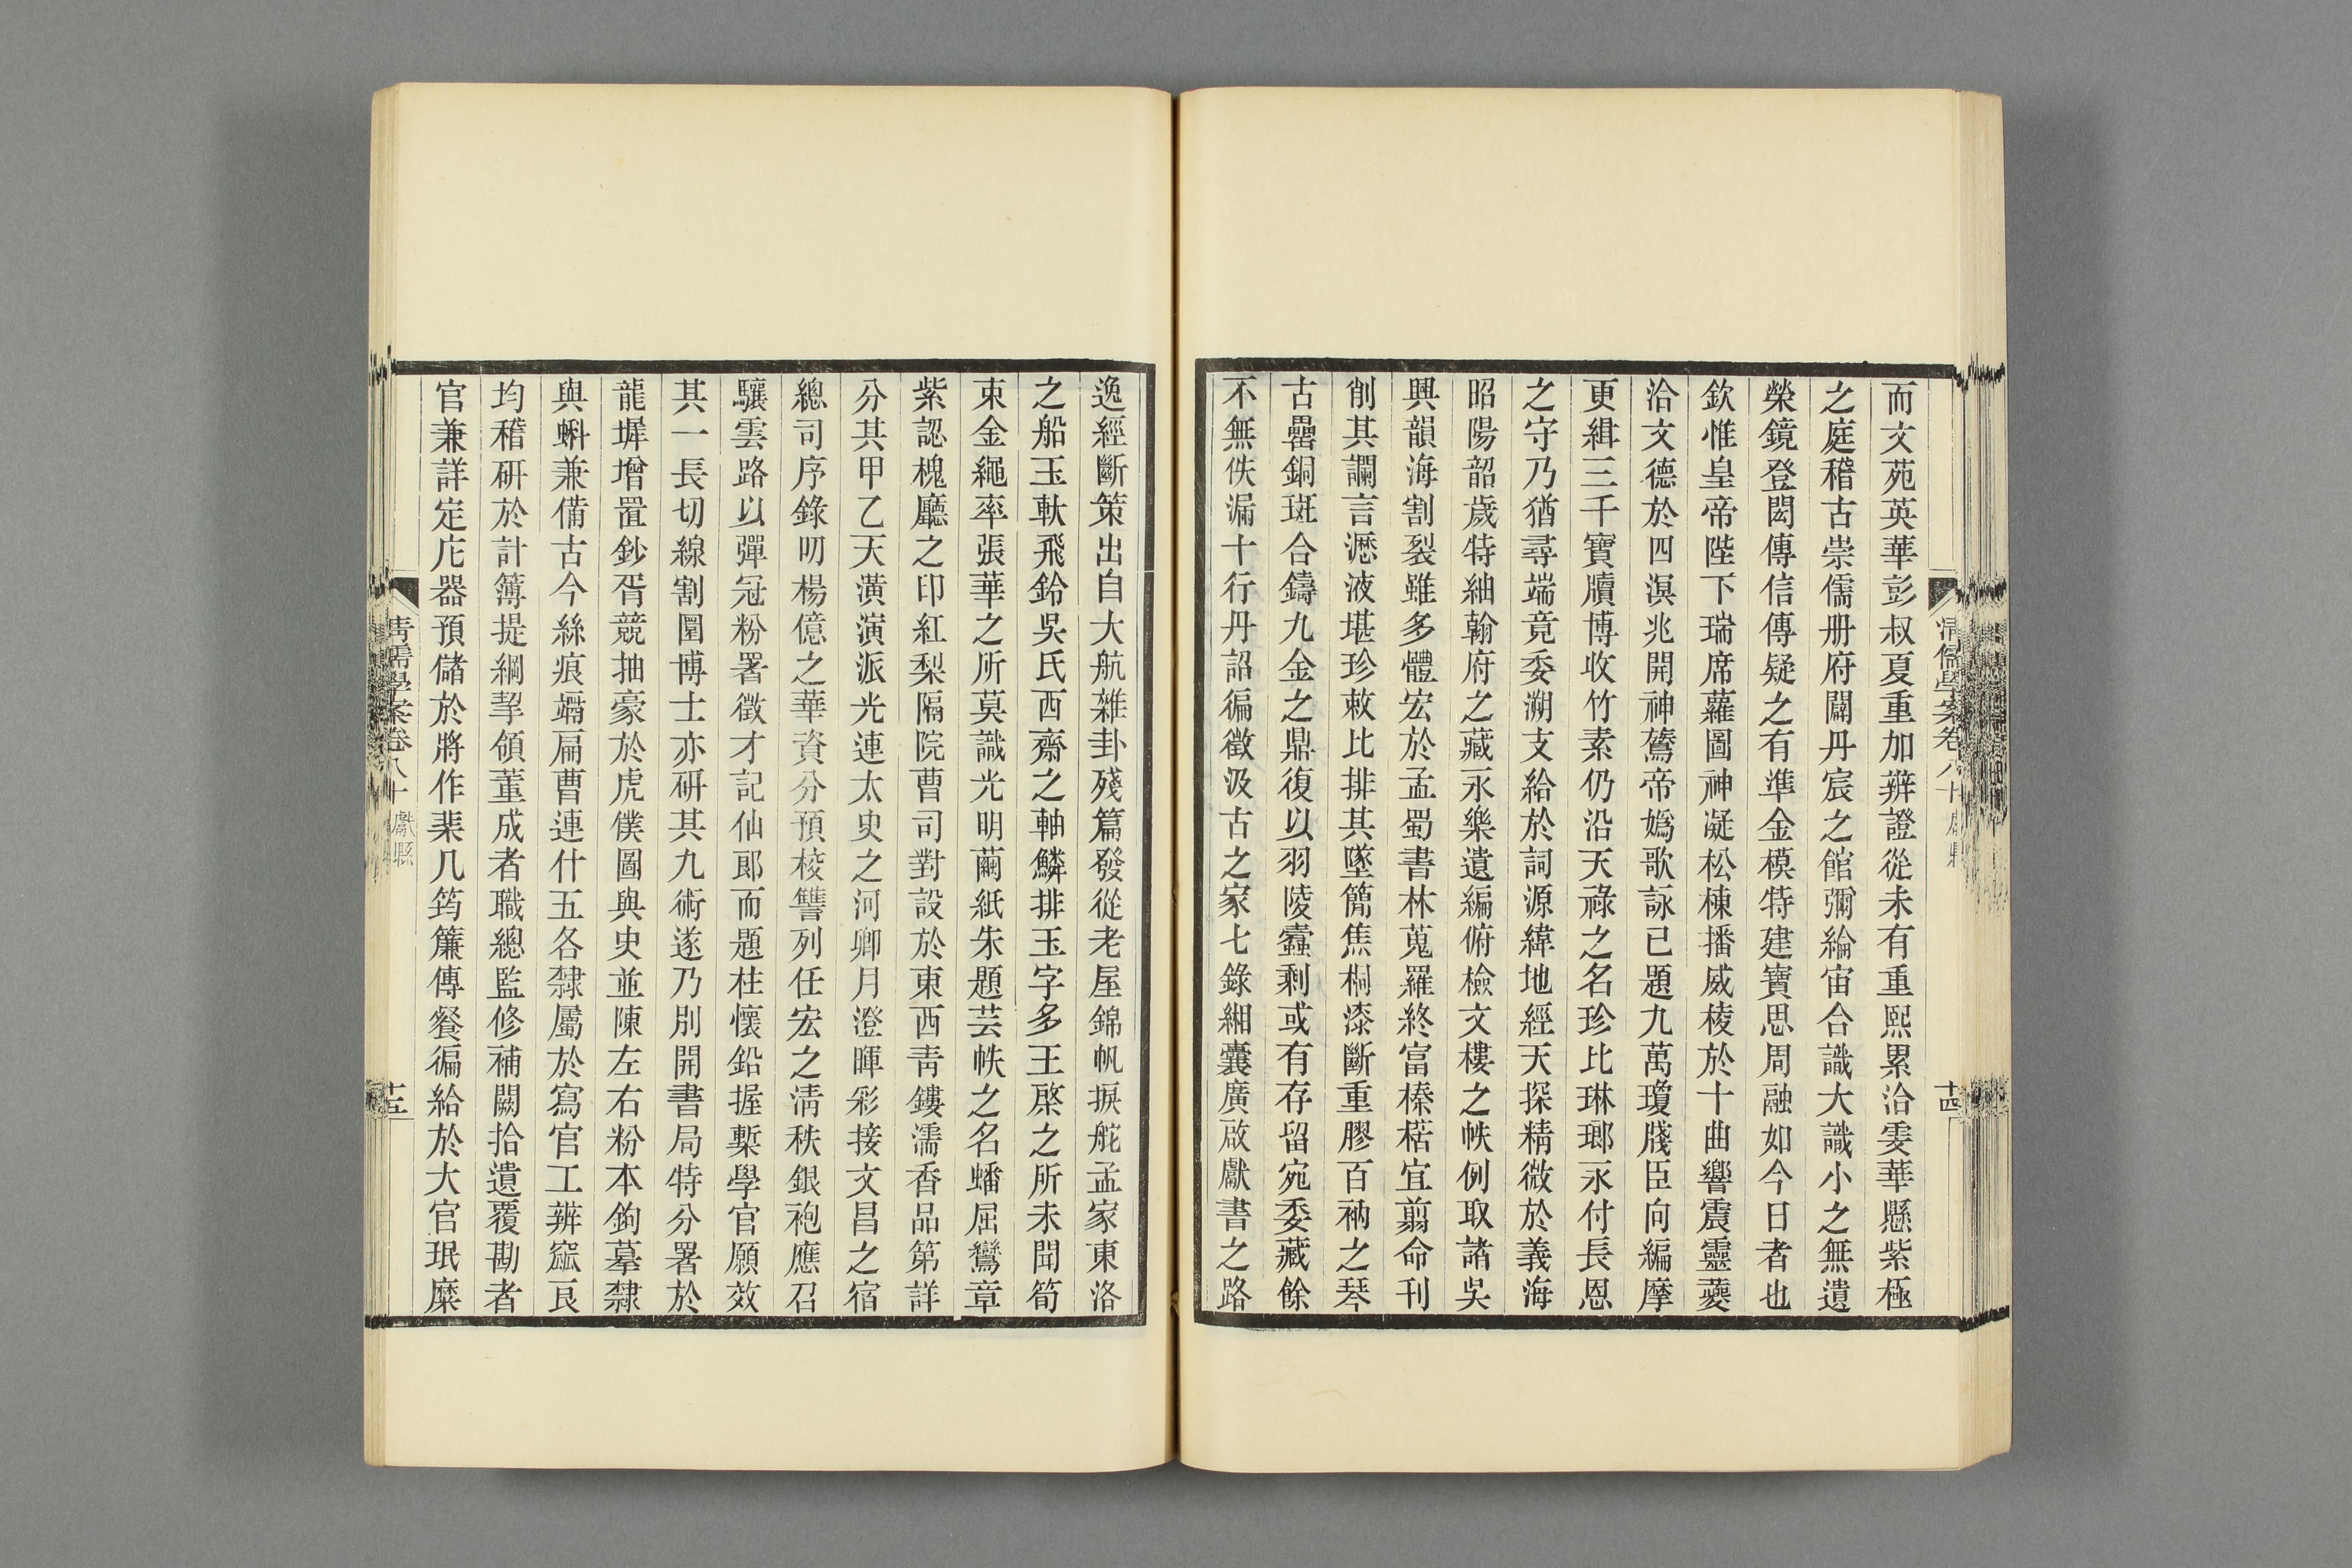 而文苑英華彭叔夏重加辨證從未有重熙累洽雯華懸紫極
之庭稽古崇儒册府闢丹宸之館彌綸宙合識大識小之無遺
榮鏡登閎傳信傳疑之有準金模特建寶思周融如今日者也
欽惟皇帝陛下瑞席蘿圖神凝松棟播威棱於十曲響震靈夔
洽文德於四溟兆開神鷟帝媯歌詠已題九萬瓊牋臣向編摩
更緝三千寶牘博收竹素仍沿天祿之名珍比琳瑯永付長恩
之守乃猶尋端竟委溯支給於詞源緯地經天探精微於義海
昭陽韶歲特紬翰府之藏永樂遺編俯檢文樓之帙例取諸吳
興韻海割裂雖多體宏於孟蜀書林蒐羅終富榛楛宜翦命刊
削其讕言瀝液堪珍敕比排其墜簡焦桐漆斷重膠百衲之琴
古罍銅斑合鑄九金之鼎復以羽陵蠹剩或有存留宛委藏餘
不無佚漏十行丹詔徧徵汲古之家七錄緗囊廣啟獻書之路
清儒學案卷八十
十四
逸經斷策出自大航雜卦殘篇發從老屋錦帆捩舵孟家東洛
之船玉軑飛鈴吳氏西齋之軸鱗排玉字多王棨之所未聞筍
束金繩率張華之所莫識光明繭紙朱題芸帙之名蟠屈鸞章
紫認槐廳之印紅梨隔院曹司對設於東西青鏤濡香品第詳
分其甲乙天潢演派光連太史之河卿月澄暉彩接文昌之宿
總司序錄叨楊億之華資分預校讐列任宏之清秩銀袍應召
驤雲路以彈冠粉署徵才記仙郎而題柱懷鉛握槧學官願效
其一長切線割圜博士亦研其九術遂乃別開書局特分署於
龍墀增置鈔胥競抽豪於虎僕圖與史並陳左右粉本鉤摹隸
與蝌兼備古今絲痕𪓰扁曹連什五各隸屬於寫官工辨窳良
均稽研於計簿提綱挈領董成者職總監修補闕拾遺覆勘者
官兼詳定庀器預儲於將作棐几筠簾傳餐徧給於大官珉糜
清儒學案卷八十 獻縣
十五